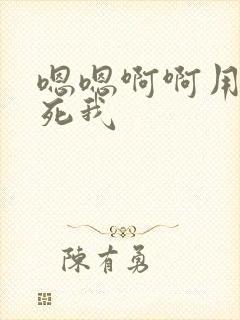 嗯嗯啊啊用
死我
陳有勇